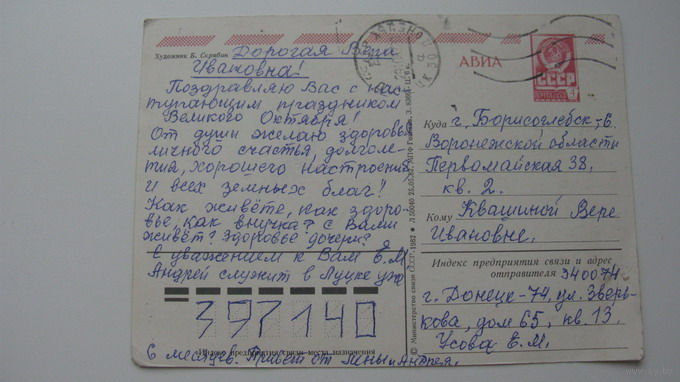 Художник Б. Скрябин
Дорогая Вера
Ивановна!
Поздравляю Вас с нас
тупающим праздником
Великого Октября!
От души желаю здоровья
личного счастья, долголе-
тия, хорошего настроения,
и всех земных благ!
Как живёте, как здоро-
вье, как внучка? с Вами
живёт? Здоровье дочери?
С уважением к Вам Е.М.
Андрей служит в Луцке уже
397140
Индекс предприятия связи места назначения
6 месяцев. Привет от Лены и Андрея.
АВИА
СССР
Куда г. Борисоглебск-6
Воронежской области
Первомайская 38,
кв. 2.
Кому Квашиной Вере
Ивановне.
Индекс предприятия связи и адрес
отправителя 340074
г. Донецк-74, ул. Зверь-
кова, дом 65, кв. 13
Усова Е.М.
© Министерство связи СССР, 1982